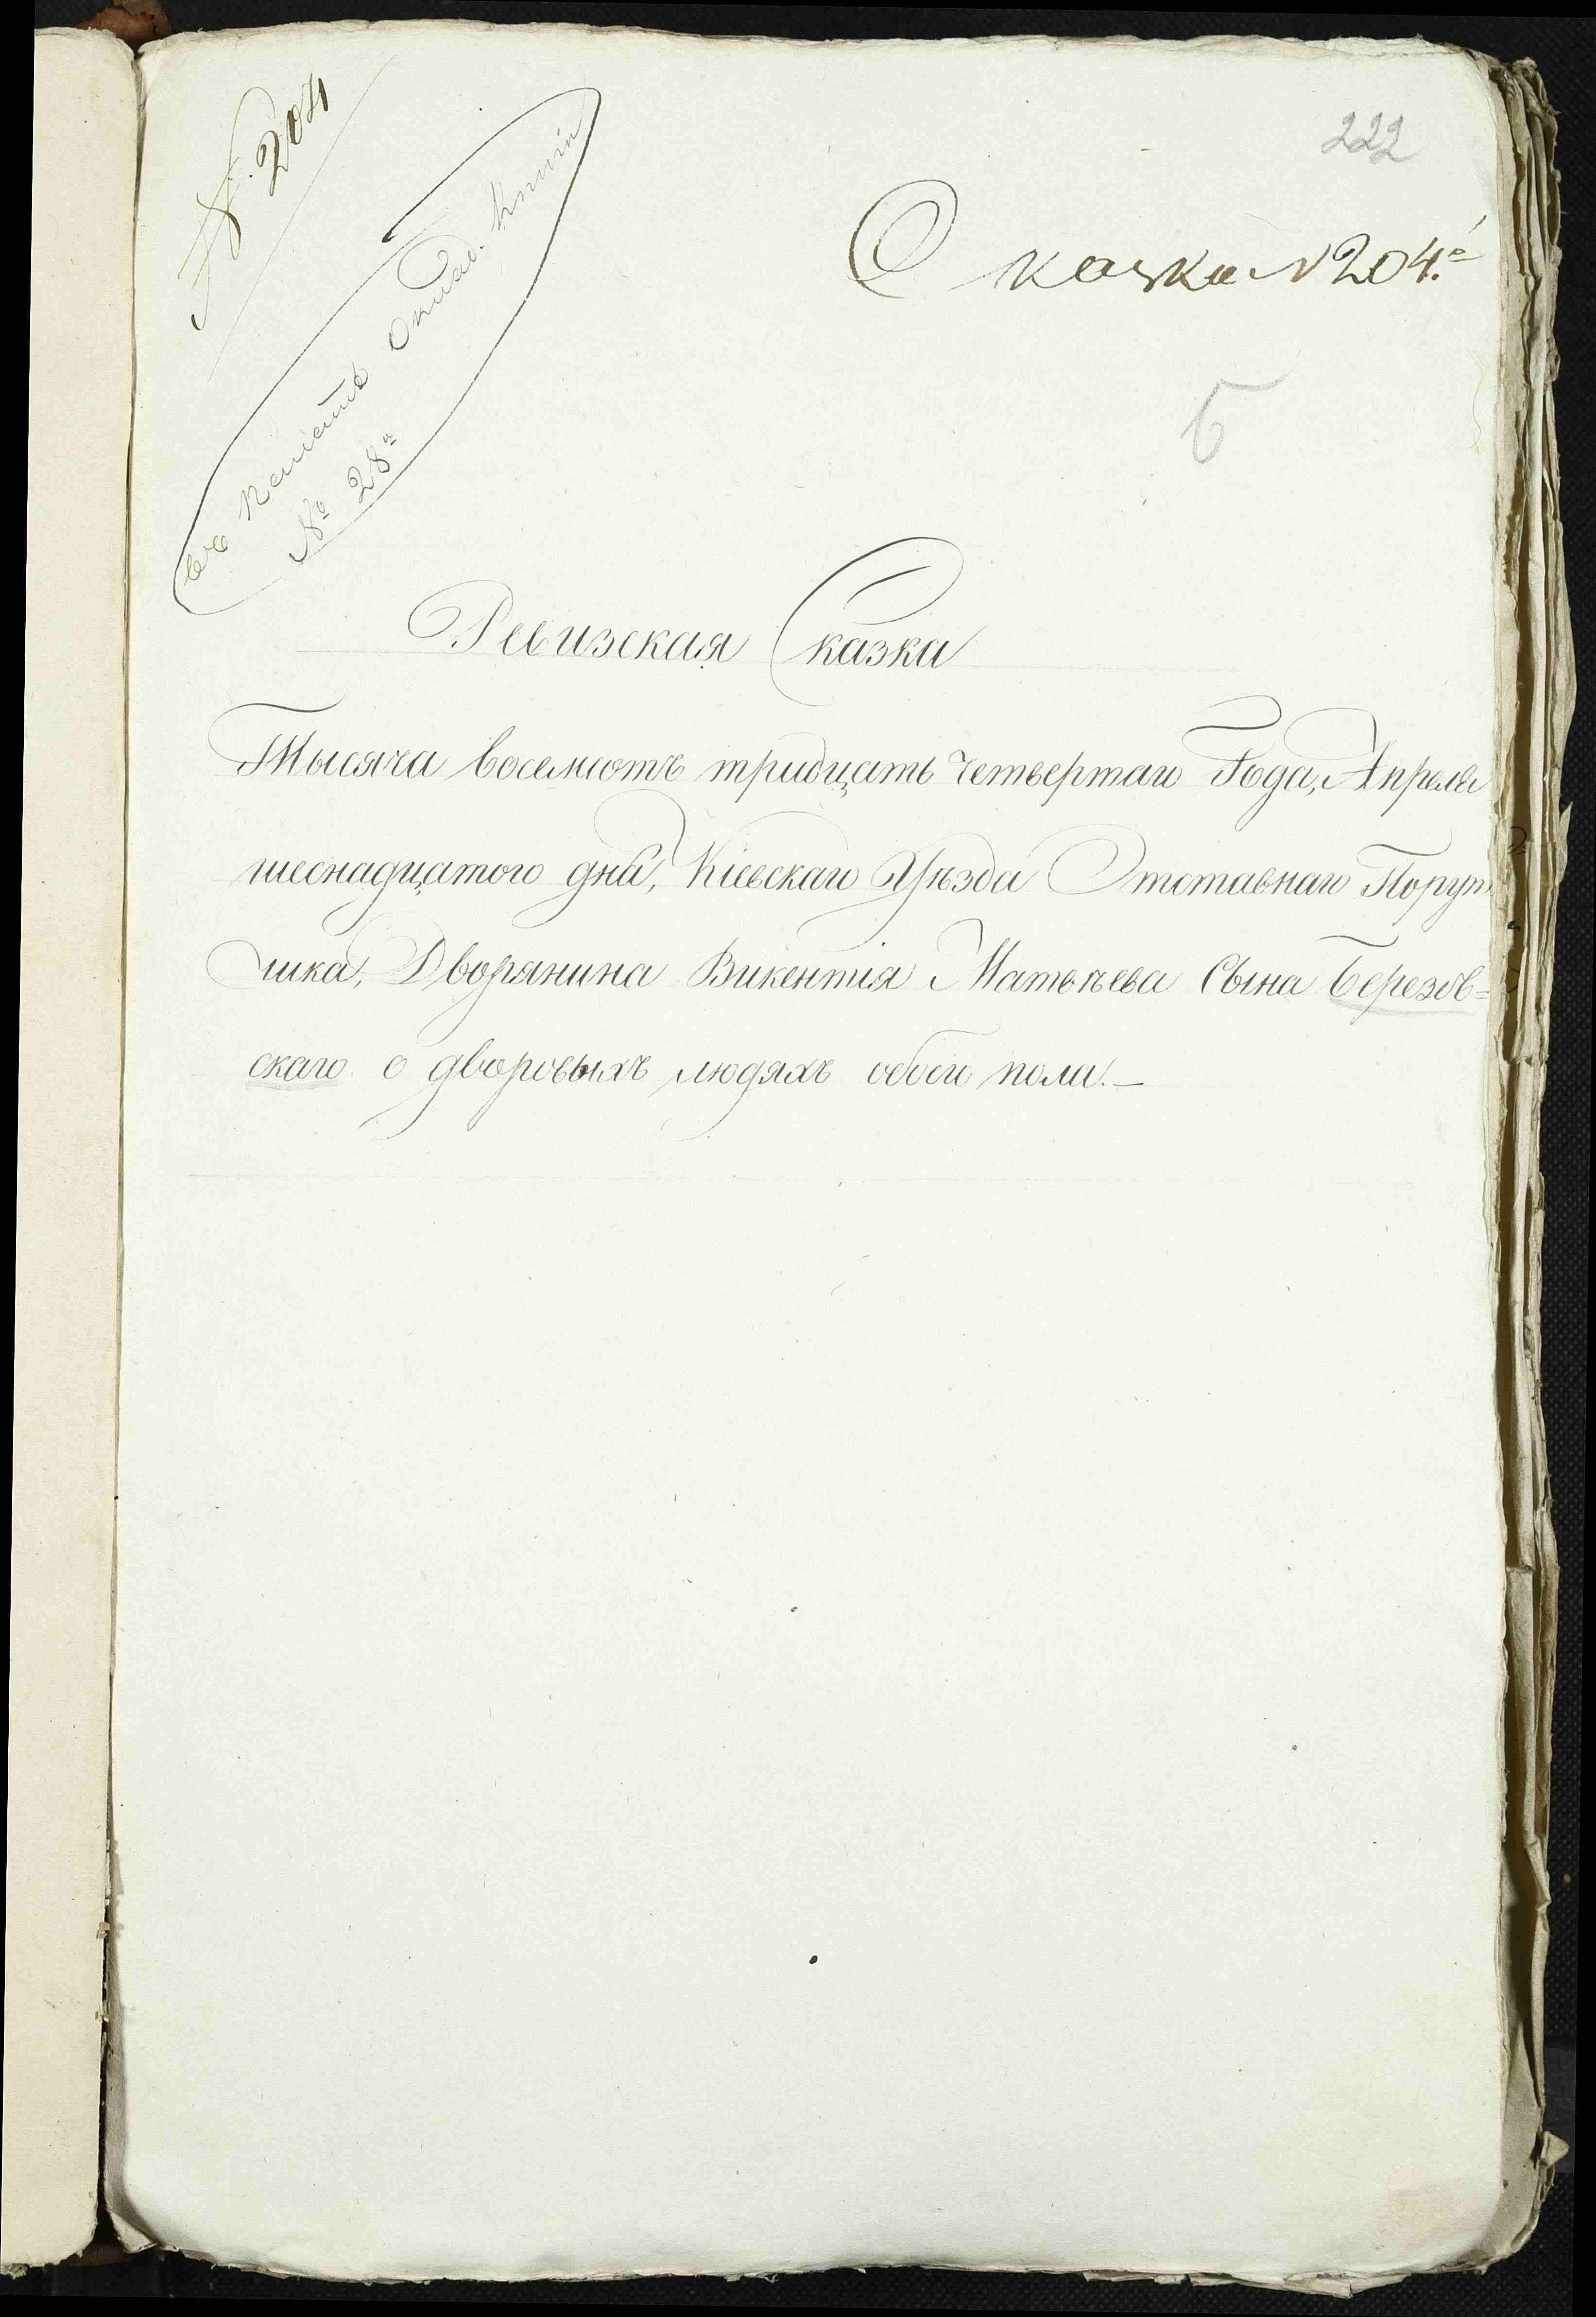 № 204
Оклад. книги
№ 28й
222
Сказка № 204.й
Б
Ревизская Сказка
Тысяча восемсотъ тридцать четвертаго Года, Апреля
шеснадцатого дня, Кіевскаго Уѣзда Отставнаго Порут
чика, Дворянина Викентія Матвѣева Сына Березов=
скаго о дворовыхъ людяхъ обоего пола.—